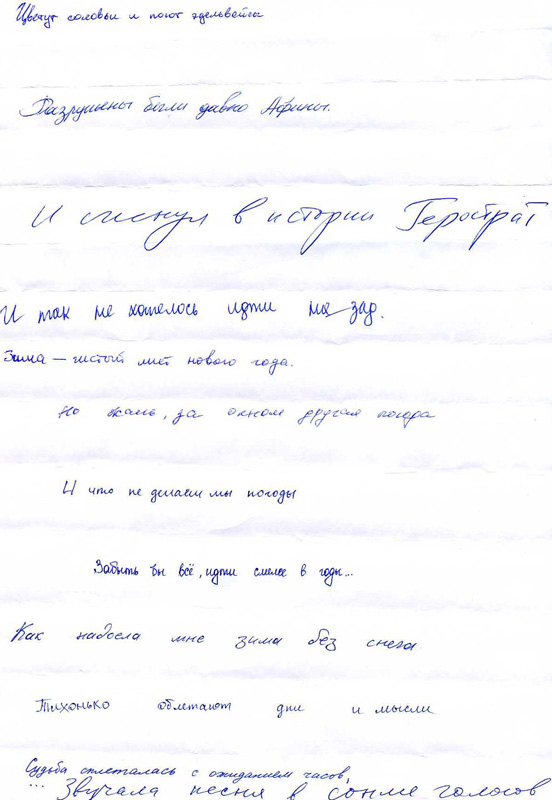 Цветут соловьи и поют эдельвейсы
Разрушены были давно Афины.
И сгинул в истории Герострат
И так не хотелось идти на зад.
Зима – чистый лист нового года.
Но жаль, за окном другая погода
И что не делаем мы погоды
Забыть бы всё, идти смелее в годы...
Как надоела мне зима без снега
Тихонько облетают дни и мысли
Судьба сплеталась с ожиданием часов,
... Звучала песня в сонме голосов